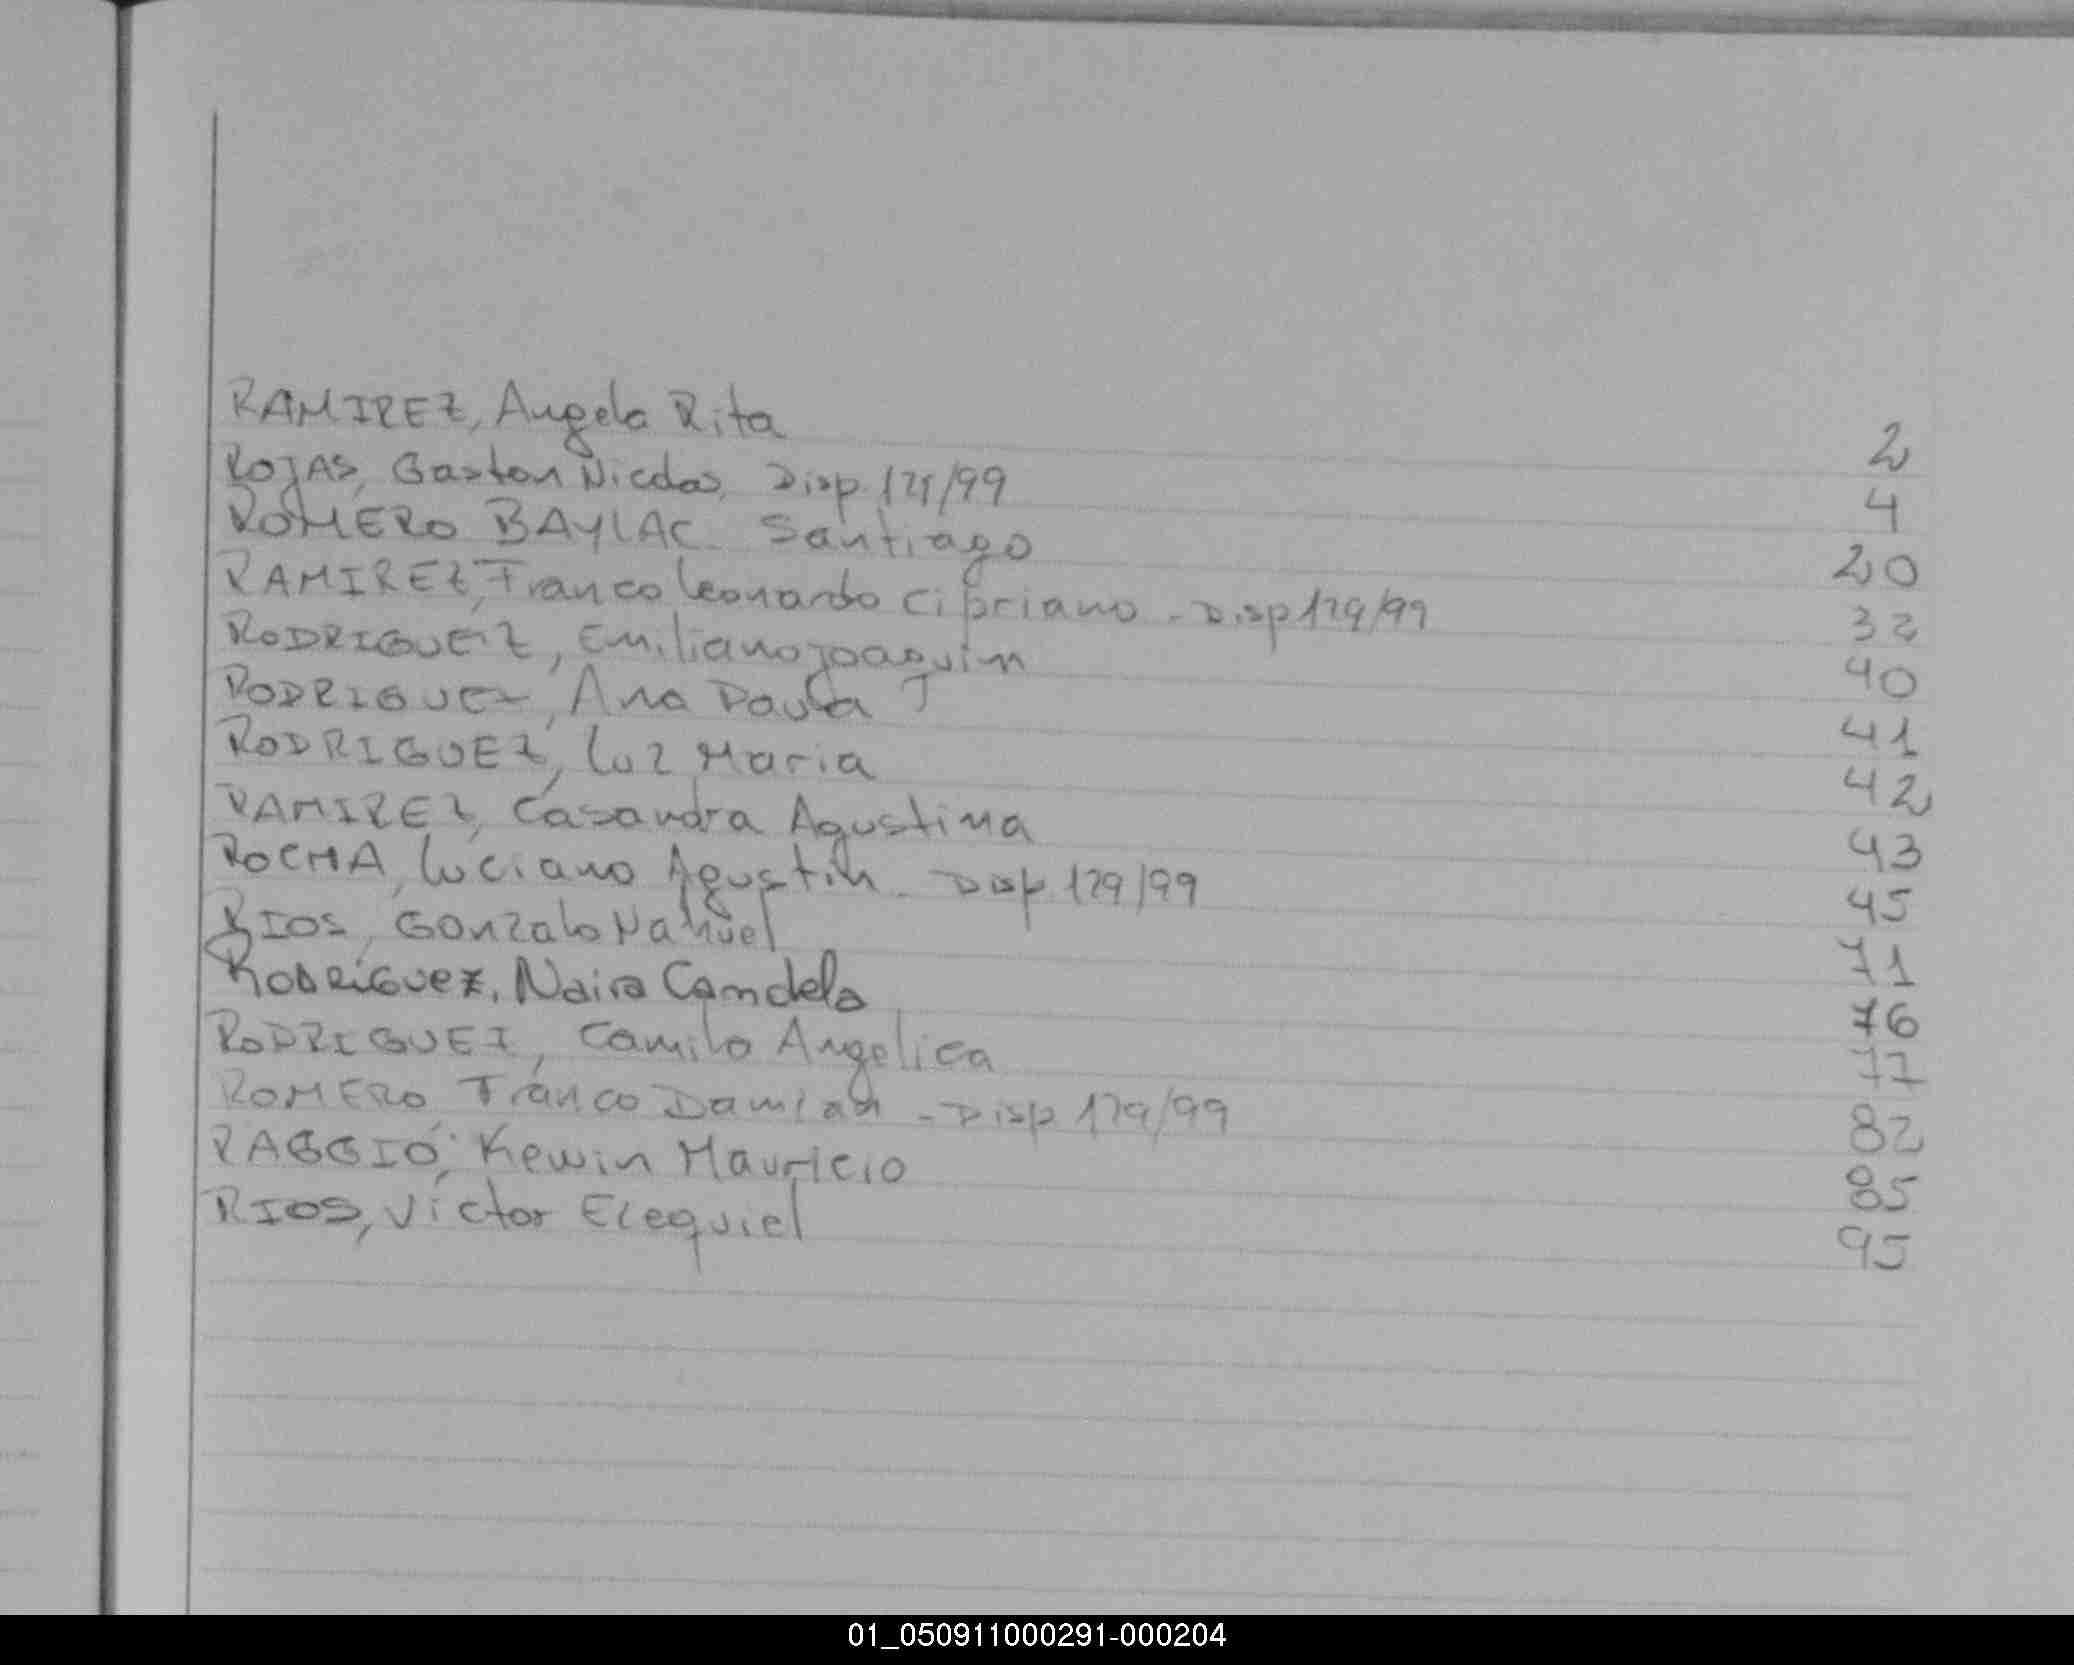 RAMIREZ, Angela Rita 2
ROJAS, Gaston Nicolas, Disp. 129/99 4
ROMERO BAYLAC Santiago 20
RAMIREZ, Franco Leonardo Cipriano - Disp 129/99 32
RODRIGUEZ, Emiliano Joaquin 40
RODRIGUEZ, Ana Paula 41
RODRIGUEZ, Luz Maria 42
RAMIREZ, Casandra Agustina 43
ROCHA, Luciano Agustin - Disp. 129/99 45
RIOS, Gonzalo Nahuel 71
RODRíGUEZ, Naira Candela 76
RODRIGUEZ, Camila Angelica 77
ROMERO Franco Damian - Disp 129/99 82
RAGGIO, Kewin Mauricio 85
RIOS, Victor Ezequiel 95
01_050911000291-000204